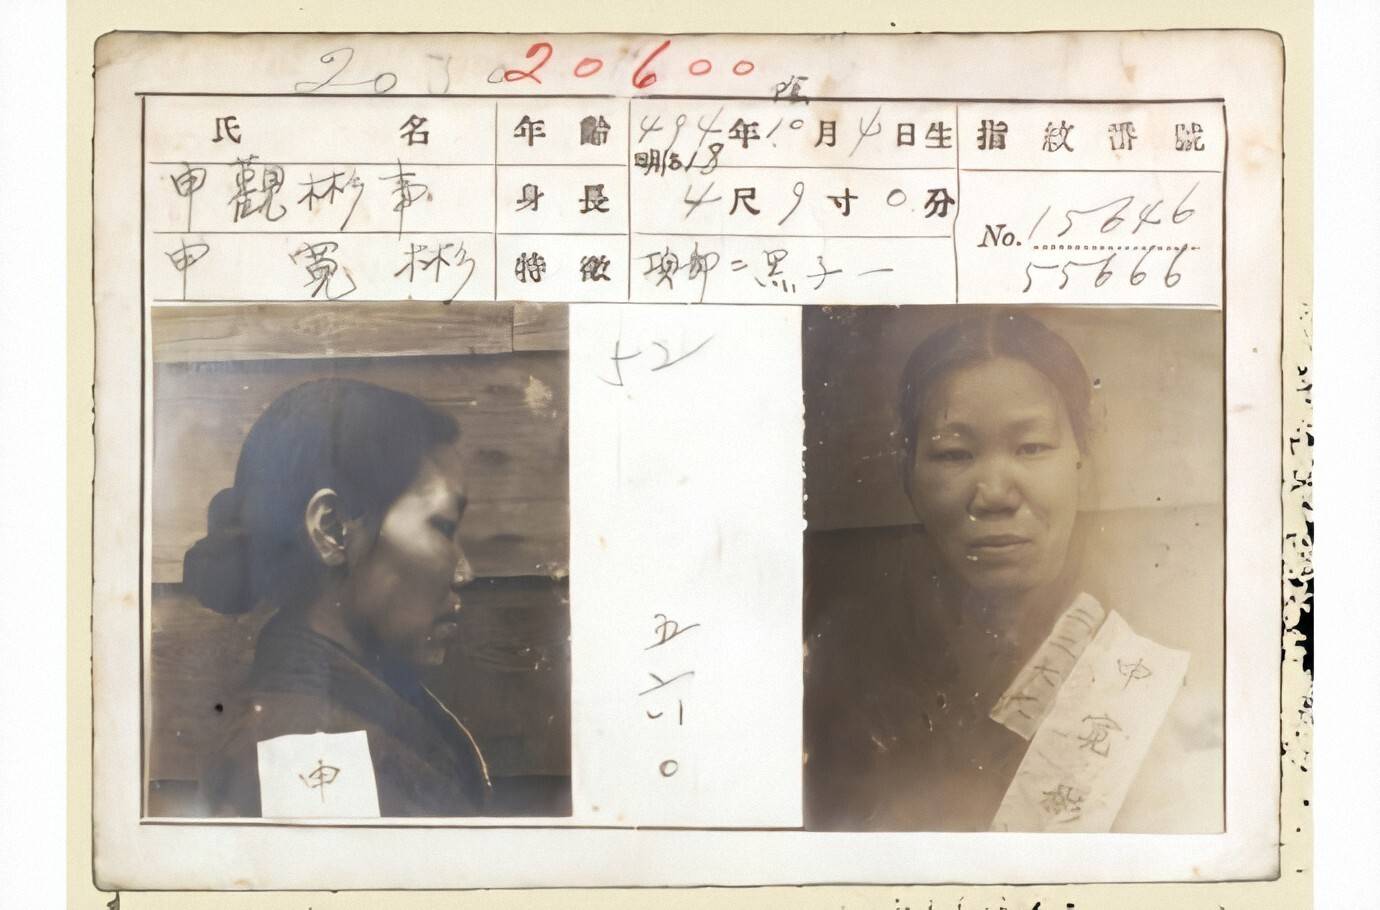 20600
氏名 年齢 494年10月4日生 指紋番號
明治18
申觀彬事 身長 4尺9寸0分 No.15646
申寬彬 特徵 項部ニ黒子一 55666
52
五
六
〇
申
申寬彬